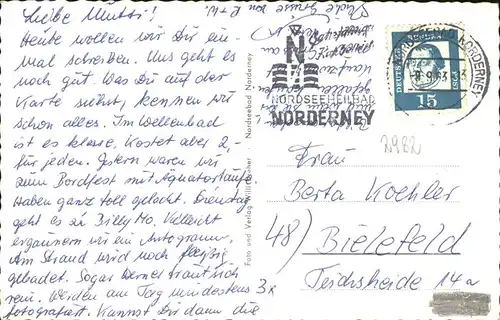 Liebe Mutti!
Heute wollen wir Dir ein-
mal schreiben. Uns geht es
noch gut. Was Du auf der
Karte siehst, kennen wir
schon alles. Im Wellenbad
ist es klasse. Kostet aber 2,-
für jeden. Gestern waren wir
zum Bordfest mit Äquatortaufe.
Haben ganz toll gelacht. Dienstag
geht es zu Billy Mo. Vielleicht
ergaunern wir ein Autogramm.
Am Strand wird noch fleißig
gebadet. Sogar Werner traut sich
rein. Werden am Tag mindestens 3x
fotografiert. Kannst Dir dann die
Viele Grüsse von
Foto und Verlag Nordseebad Norderney
N
NORDSEEHEILBAD
NORDERNEY
NORDERNEY
DEUTSCHE BUNDESPOST
15
2982
Frau
Berta Koehler
48) Bielefeld
Teichsheide 14a